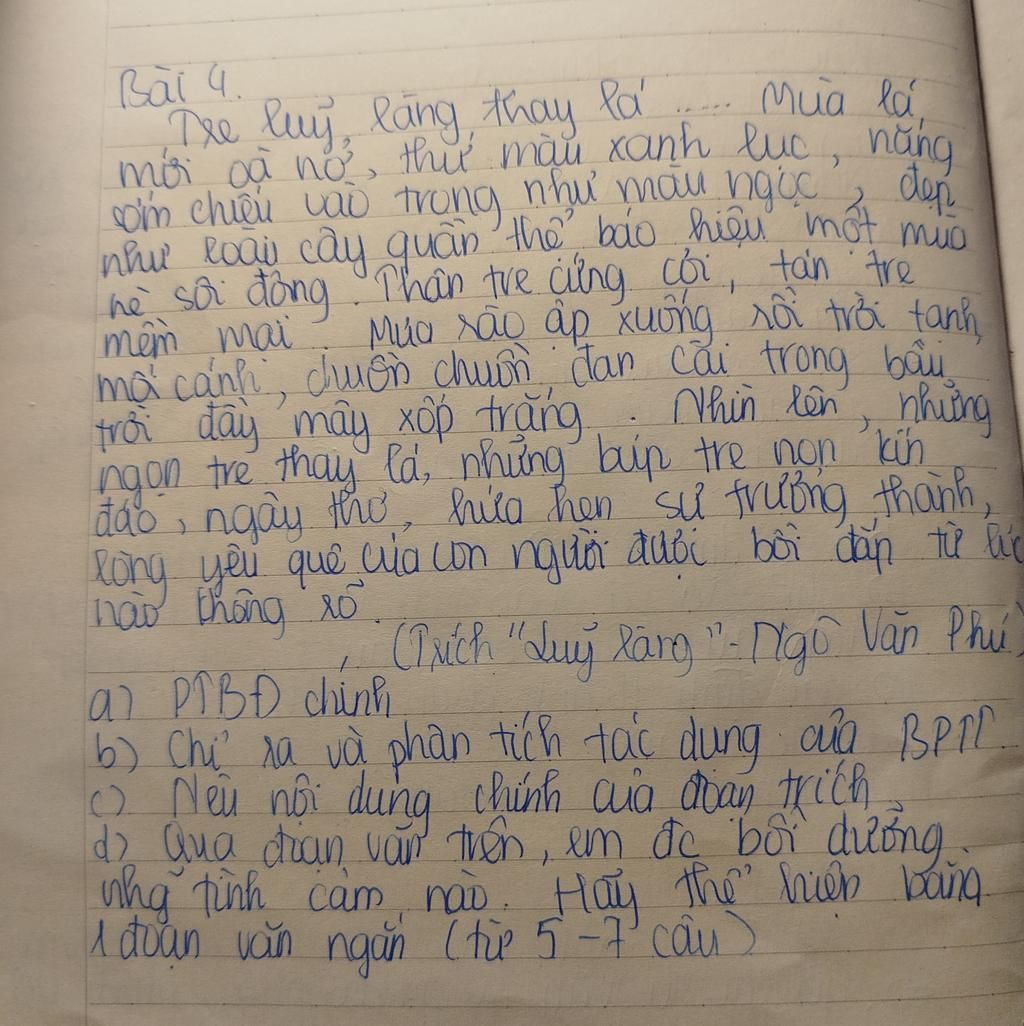 Bài 4.
Tre luỹ làng thay lá ...... Mùa lá
mới oà nở, thứ màu xanh lục, nắng
sớm chiếu vào trong như màu ngọc, đẹp
như loài cây quần thể báo hiệu một mùa
hè sôi động. Thân tre cứng cỏi, tán tre
mềm mại. Mưa rào ập xuống rồi trời tạnh,
mối cánh, chuồn chuồn đan cài trong bầu
trời đầy mây xốp trắng. Nhìn lên, những
ngọn tre thay lá, những búp tre non kín
đáo, ngây thơ, hứa hẹn sự trưởng thành,
lòng yêu quê của con người được bồi đắp từ lúc
nào không rõ.
(Trích "Luỹ làng" - Ngô Văn Phú)
a) PTBĐ chính
b) Chỉ ra và phân tích tác dụng của BPTT
c) Nêu nội dung chính của đoạn trích
d) Qua đoạn văn trên, em đc bồi dưỡng
nhg~ tình cảm nào. Hãy thể hiện bằng
1 đoạn văn ngắn (từ 5 - 7 câu)